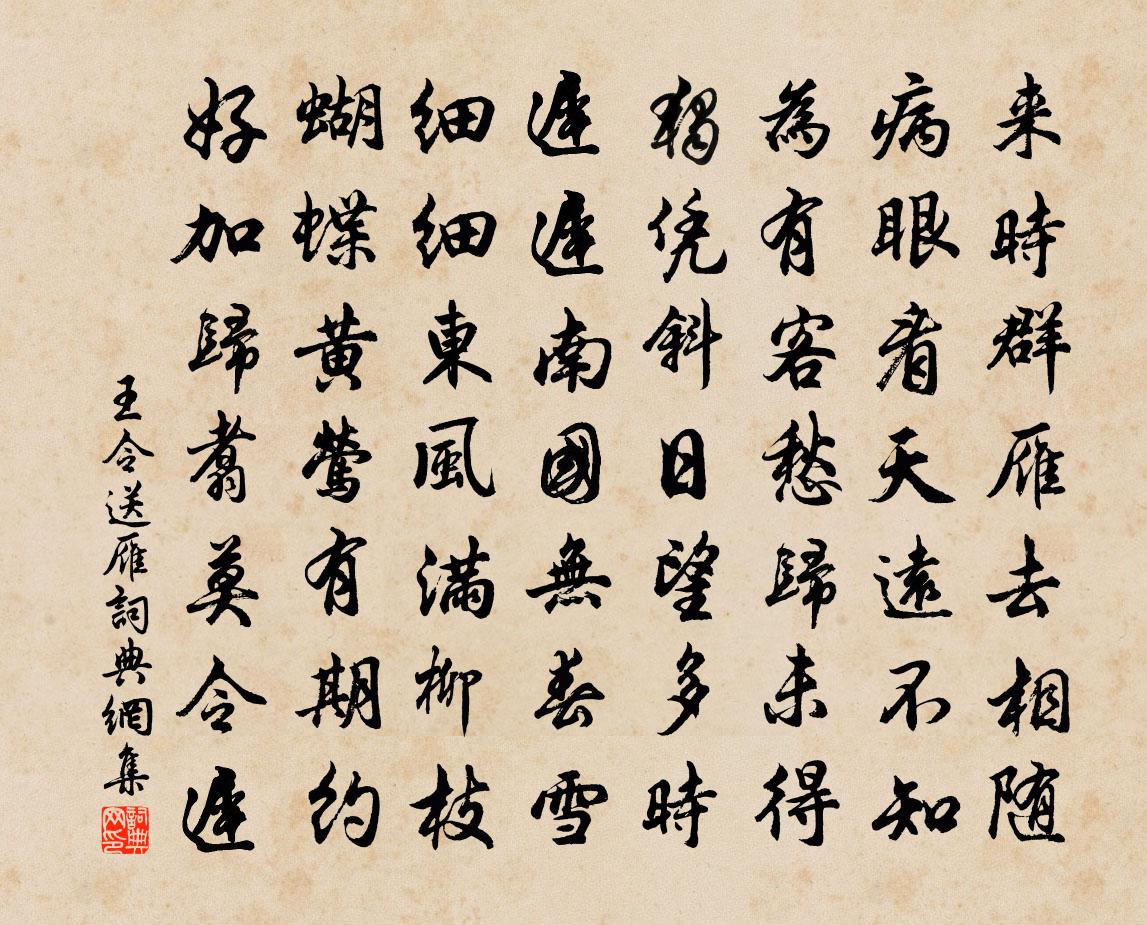 来時群雁去相随
病眼看天遠不知
為有客愁歸未得
獨凭斜日望多時
遲遲南國無春雪
細細東風滿柳枝
蝴蝶黃鶯有期約
好加歸翥莫令遲
王令送雁詞典網集
詞典网印